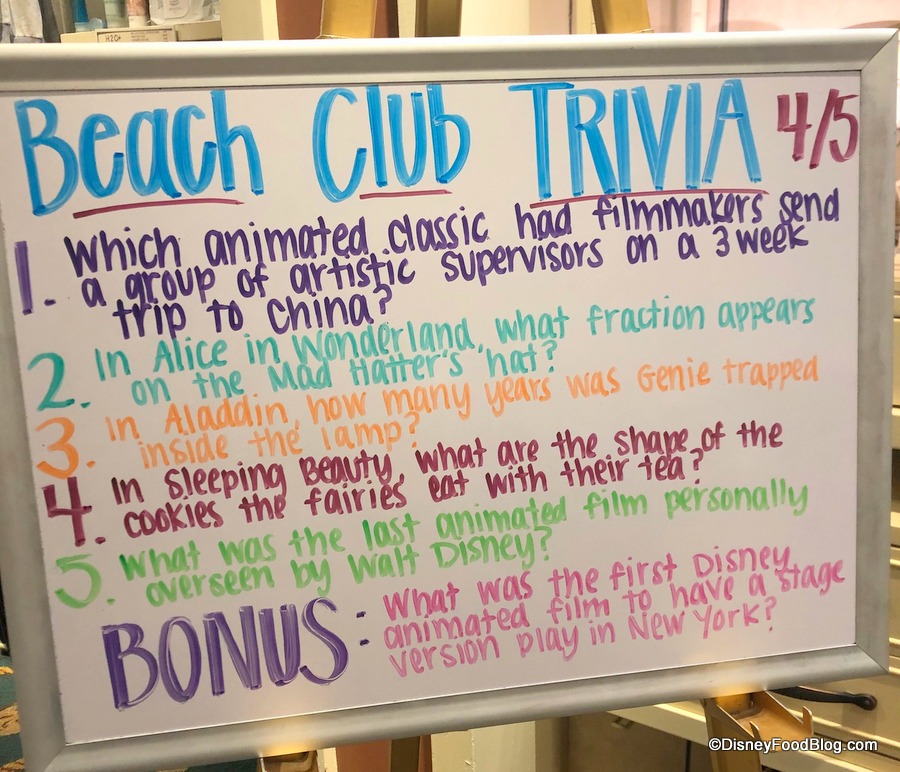 H2O+
Beach Club TRIVIA 4/5
1. Which animated classic had filmmakers send
a group of artistic supervisors on a 3 week
trip to China?
2. In Alice in Wonderland, what fraction appears
on the Mad Hatter's hat?
3. In Aladdin, how many years was Genie trapped
inside the lamp?
4. In Sleeping Beauty, what are the shape of the
cookies the fairies eat with their tea?
5. What was the last animated film personally
overseen by Walt Disney?
BONUS: What was the first Disney
animated film to have a stage
version play in New York?
©DisneyFoodBlog.com